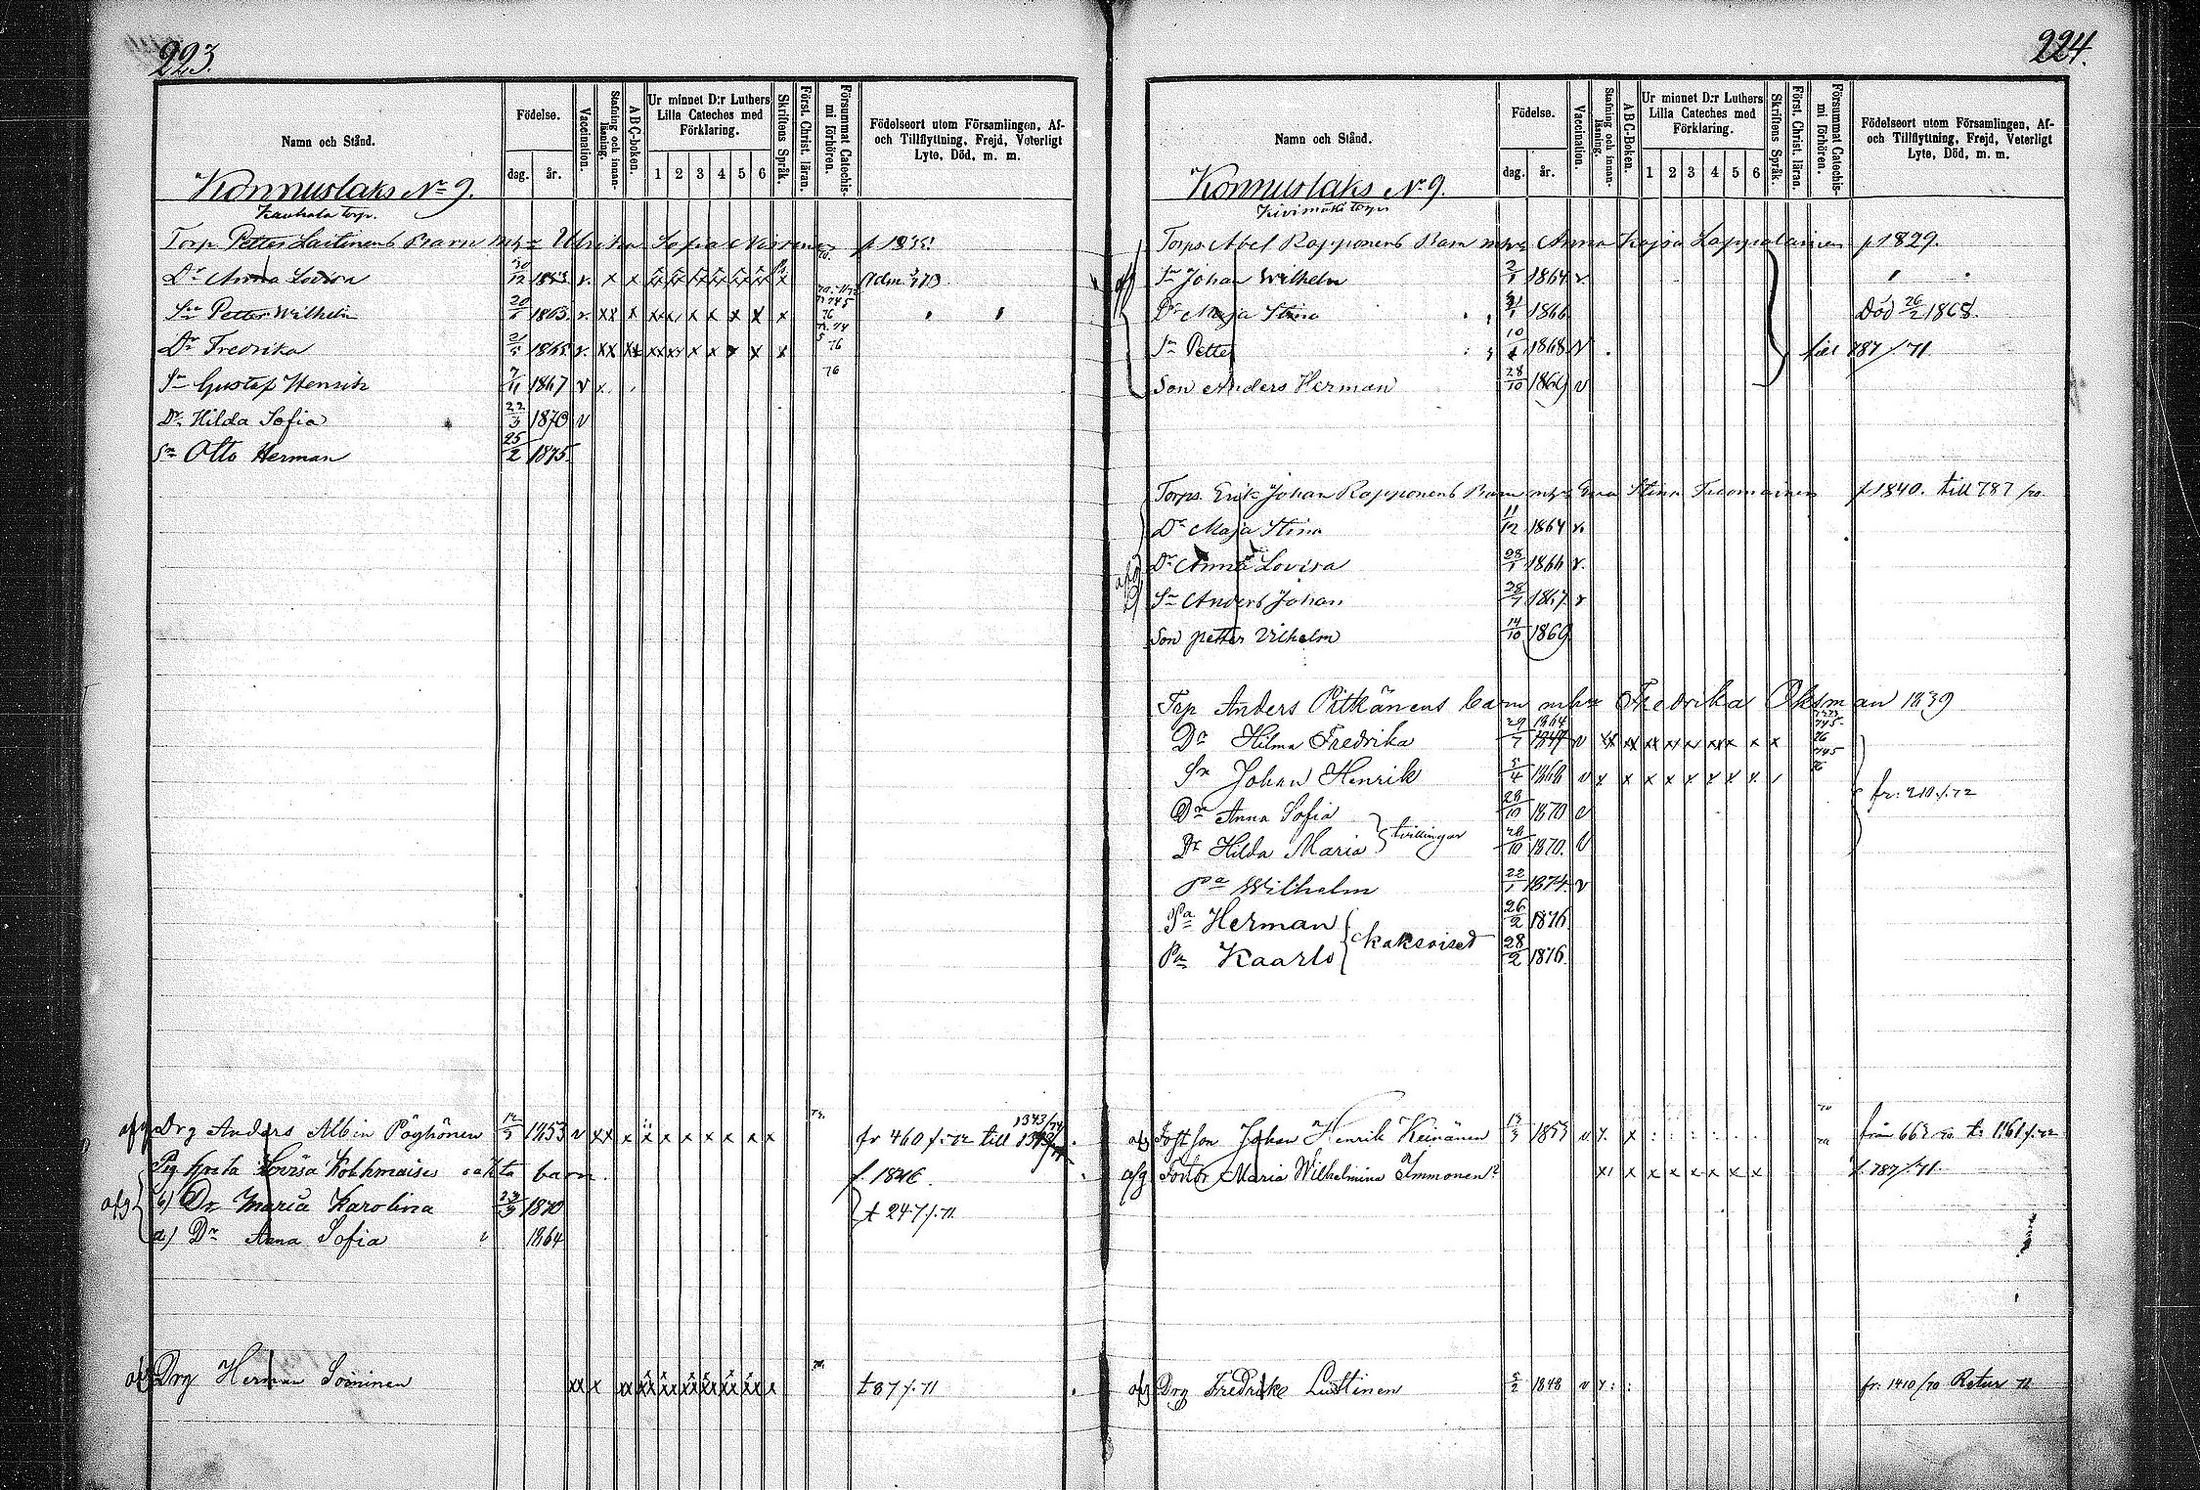 223.
Namn och Stånd.
Födelse.
dag.
år.
Vaccination.
Stafning och innanläsning.
ABC-boken.
Ur minnet D:r Luthers Lilla Cateches med Förklaring.
1 2 3 4 5 6
Skriftens Språk.
Först. Christ. läran.
Försummat Catechismi förhören.
Födelseort utom Församlingen, Af- och Tillflyttning, Frejd, Veterligt Lyte, Död, m. m.
Konnuslaks No 9.
Kauhala torp.
Torp. Petter Laitinens Barn mhu Ulrika Sofia
Dr Anna Lovisa 30/12 1853 v. x x
Sn Petter Wilhelm 1863 v xx x x x x x x
Dr Fredrika 1865 v. xx xx x x x x x 76
Sn Gustaf Henrik 7/11 1867 v x 76
Dr Hilda Sofia 22/3 1870 v
Sn Otto Herman 25/2 1875
afg Drg Anders Albin 1853 v xx x x x x x x x x fr 460/72 till
Pig Lovisa barn f. 1826.
afg b) Dr Maria Karolina 1870 t 247/71
a) Dr Anna Sofia 1864
Drg Herman t 87/71
224.
Namn och Stånd.
Födelse.
dag.
år.
Vaccination.
Stafning och innanläsning.
ABC-Boken.
Ur minnet D:r Luthers Lilla Cateches med Förklaring.
1 2 3 4 5 6
Skriftens Språk.
Först. Christ. läran.
Försummat Catechismi förhören.
Födelseort utom Församlingen, Af- och Tillflyttning, Frejd, Veterligt Lyte, Död, m. m.
Konnuslaks No 9.
Kivimäki torp
Torps. Abel Rapponens Barn mhu Anna Kajsa Lappalainen f 1829.
afg Sn Johan Wilhelm 2/1 1864 v.
Dr Maja Stina 1866 Död 26/2 1868.
Sn Petter 1868 v 787/71
Son Anders Herman 28/10 1869 v
Torps. Erik Johan Rapponens Barn mhu Eva Stina Tuomainen f 1840. till 787/70.
Dr Maja Stina 11/12 1864 v.
Dr Anna Lovisa 28/1 1866 v.
Sn Anders Johan 1867 v
Son Petter Vilhelm 14/10 1869
Trp Anders Pitkänens barn mhu Fredrika Oksman 1839
Dr Hilma Fredrika 1864 v
Sn Johan Henrik 5/4 1868 v x x x x x x x x
fr: 210/72
Dr Anna Sofia 28/10 1870 v
tvillingar
Dr Hilda Maria 28/10 1870. v
Pa Wilhelm 22/1 1874. v
Pa Herman 26/2 1876.
kaksoiset
Pa Kaarlo 28/2 1876.
afg Fostson Johan Henrik Keinänen 1853 v x. x
afg Maria Wilhelmina Immonen x x x x x x x t. 787/71.
afg Drg Fredrik Luttinen 5/2 1848 v fr: 1410/70 Retur 72